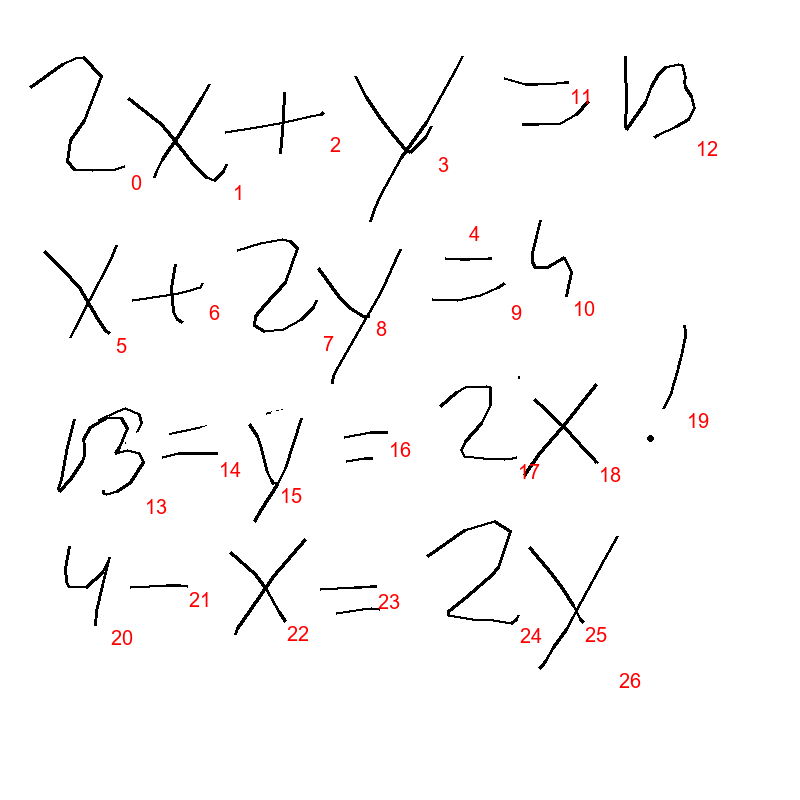 2x + y = 13
0 1 2 3 11 12
x + 2y = 4
5 6 7 8 4 9 10
13 = y = 2x
13 14 15 16 17 18 19
4 - x = 2y
20 21 22 23 24 25 26